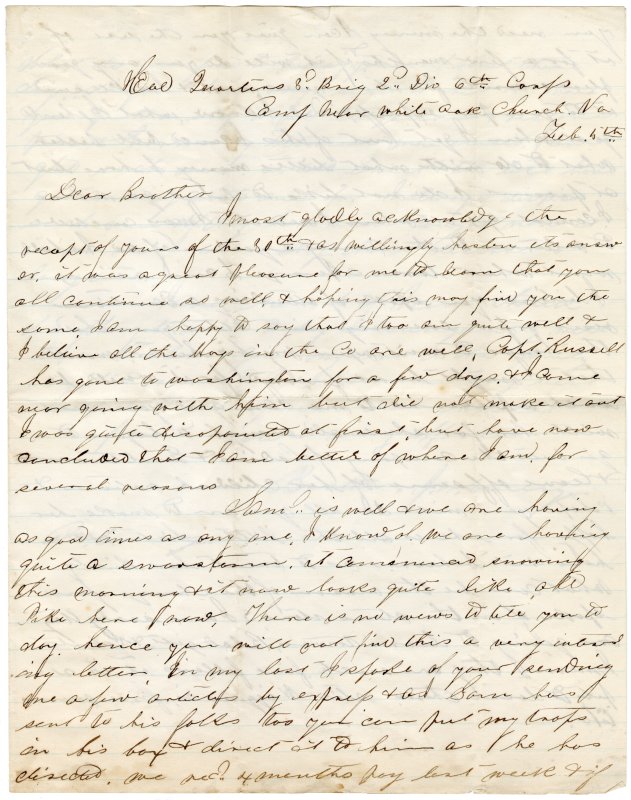 Head Quarters 3d. Brig 2d. Div 6th Corps
Camp Near White Oak Church. Va
Feb. 5th
Dear Brother
I most gladly acknowledge the
recept of yours of the 30th & as willingly hasten its answ
er, it was a great pleasure for me to learn that you
all continue so well, & hoping this may find you the
same I am happy to say that I too am quite well &
I believe all the boys in the Co are well, Capt. Russell
has gone to washington for a few days. & I come
near going with him but did not make it out
I was quite disopinted at first, but have now
concluded that I am better of where I am. for
several reasons
Saml. is well & we are having
as good times as any one, I know of. we are having
quite a snowstorm. it commenced snowing
this morning & it now looks quite like old
Pike here now, There is no news to tell you to
day. hence you will not find this a very interest
ing letter, In my last I spoke of your sending
me a few articles by express & as Sam has
sent to his folks too you can put my traps
in his box & direct it to him as he has
directed. we recd. 4 months pay last week & if